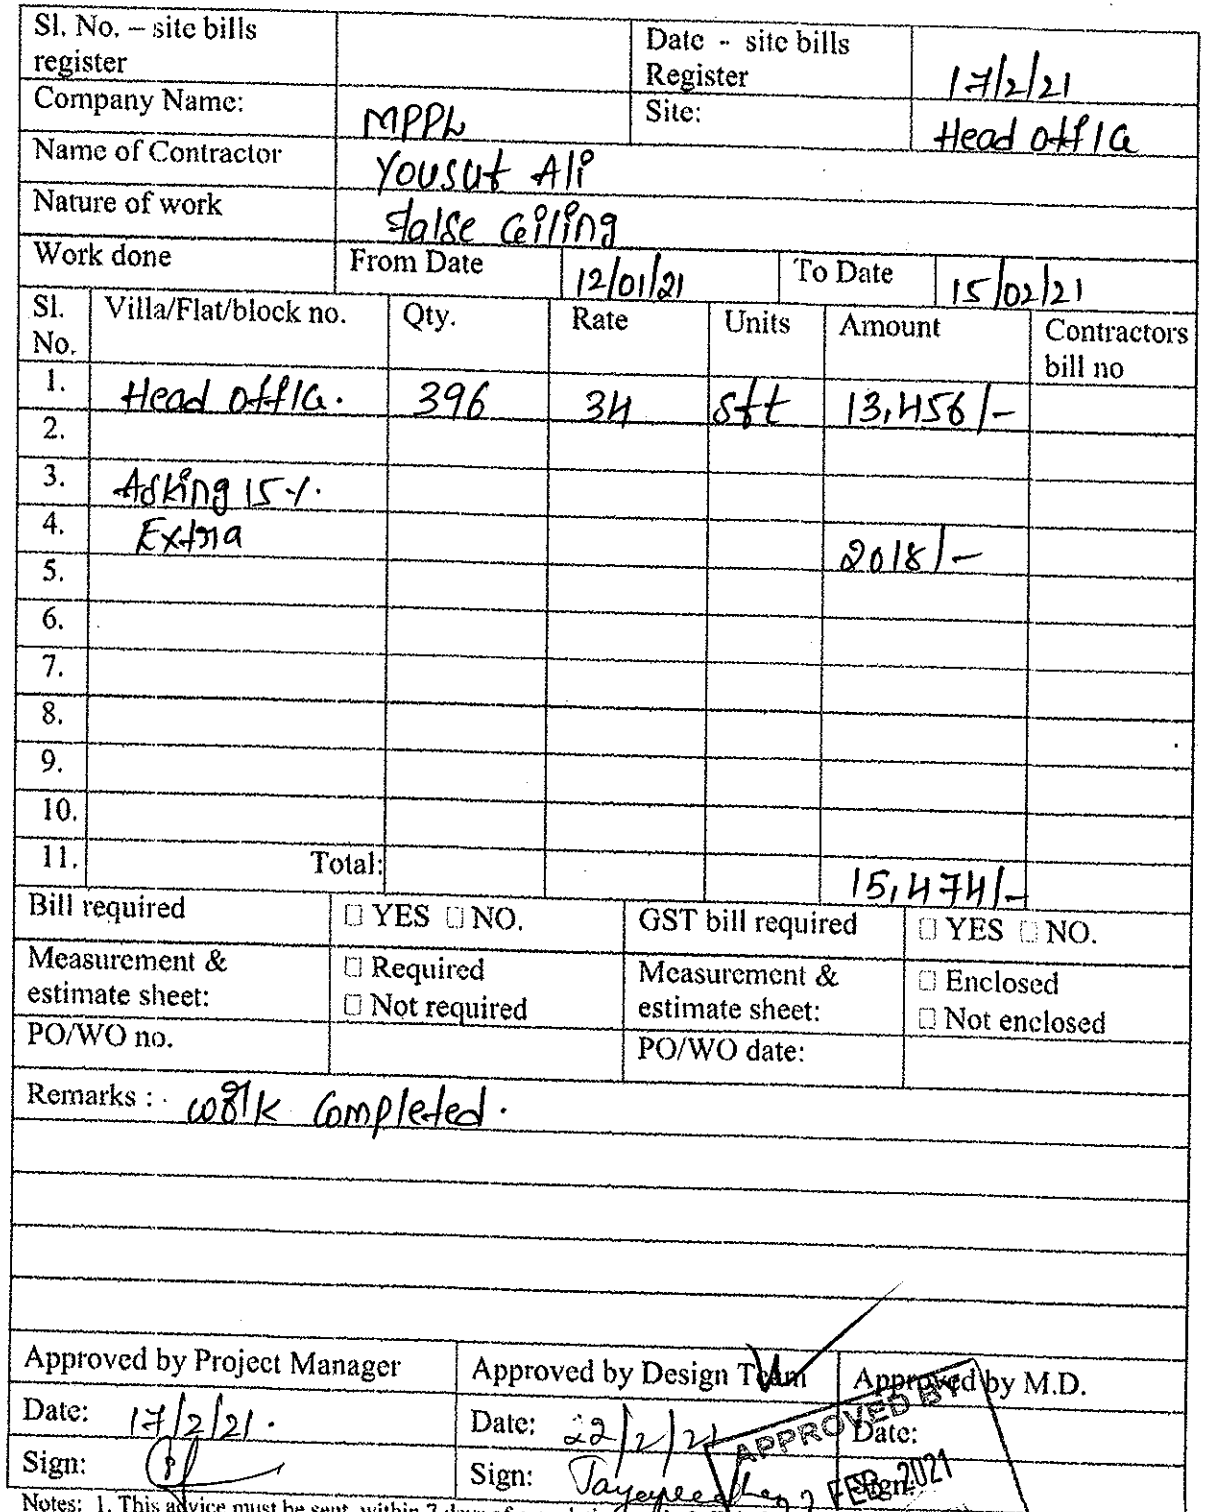 Sl. No. – site bills register Date - site bills Register 17/2/21
Company Name: MPPL Site: Head office
Name of Contractor Yousuf Ali
Nature of work False Ceiling
Work done From Date 12/01/21 To Date 15/02/21
Sl. No. Villa/Flat/block no. Qty. Rate Units Amount Contractors bill no
1. Head office. 396 34 sft 13,456/-
2.
3. Asking 15%.
4. Extra 2018/-
5.
6.
7.
8.
9.
10.
11. Total: 15,474/-
Bill required ☐ YES ☐ NO. GST bill required ☐ YES ☐ NO.
Measurement & estimate sheet: ☐ Required ☐ Not required Measurement & estimate sheet: ☐ Enclosed ☐ Not enclosed
PO/WO no. PO/WO date:
Remarks : work completed.
Approved by Project Manager Approved by Design Team Approved by M.D.
Date: 17/2/21. Date: 22/2/21 Date:
Sign: Sign: Sign:
APPROVED BY
FEB 2021
Notes: 1. This advice must be sent within 7 days of